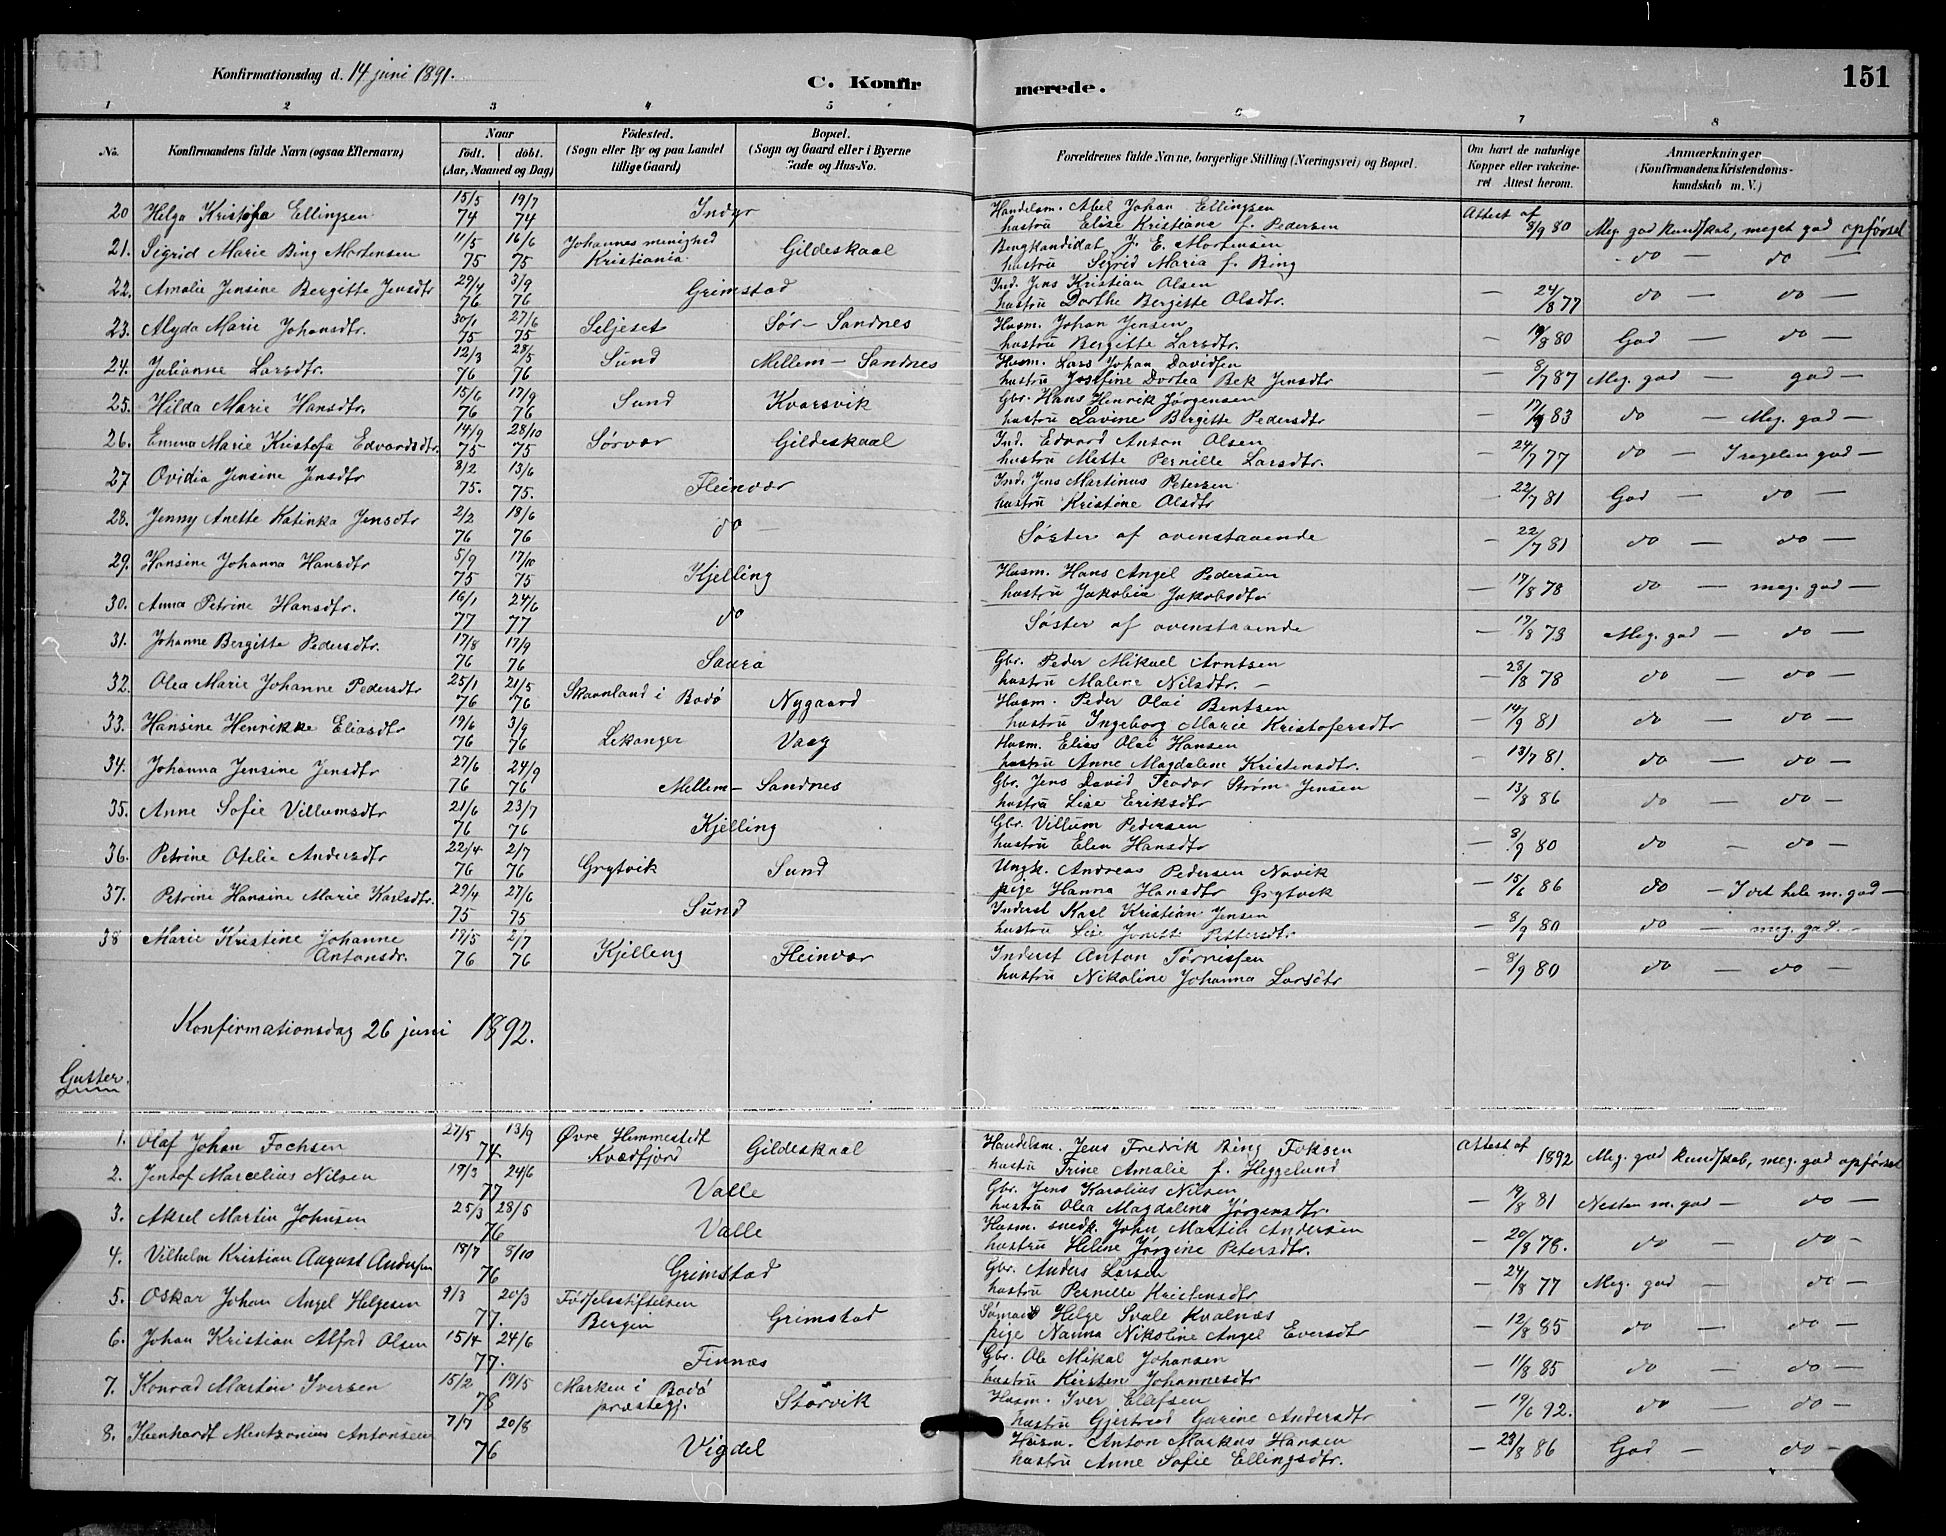 Konfirmationsdag d. 14 juni 1891.
C. Konfirmerede.
151
1 2 3 4 5 6 7 8
No.
Konfirmandens fulde Navn (ogsaa Efternavn)
Naar
født. døbt.
(Aar, Maaned og Dag)
Fødested.
(Sogn eller By og paa Landet tillige Gaard)
Bopæl.
(Sogn og Gaard eller i Byerne Gade og Hus-No.
Forældrenes fulde Navne, borgerlige Stilling (Næringsvei) og Bopæl.
Om havt de naturlige Kopper eller vakcineret Attest herom.
Anmærkninger
(Konfirmandens Kristendomskundskab m. V.)
20 Helga Kristofa Ellingsen 15/5 74 19/7 74 Indyr Handelsm. Abel Johan Ellingsen hustru Elise Kristiane f. Pedersen Attest af 8/9 80 Meg. god kundskab, meget god opførsel
21. Sigrid Marie Bing Mortensen 11/5 75 16/6 75 Johannes menighed Kristiania. Gildeskaal Bergkandidat J. E. Mortensen hustru Sigrid Maria f. Bing do — do —
22. Amalie Jensine Bergitte Jensdtr 29/4 76 3/9 76 Grimstad Ind. Jens Kristian Olsen hustru Dorthe Bergitte Olsdtr. — 24/8 77 do — do —
23. Alyda Marie Johansdtr. 30/1 75 27/6 75 Seljeset Sør-Sandnes Husm. Johan Jensen hustru Bergitte Larsdtr. — 19/8 80 God — do
24. Julianne Larsdtr. 12/3 76 28/5 76 Sund Mellem-Sandnes Husm. Lars Johan Davidsen hustru Josefine Dortea Bek Jensdtr — 8/7 87 Meg. god — god —
25. Hilda Marie Hansdtr. 15/6 76 17/9 76 Sund Kvarsvik Gbr. Hans Henrik Jørgensen hustru Lavine Bergitte Pedersdtr — 17/9 83 do — Meg. god —
26. Emma Marie Kristofa Edvardsdtr. 14/9 75 28/10 75 Sørvær Gildeskaal Ind. Edvard Anton Olsen hustru Mette Pernille Larsdtr. — 24/7 77 do — I regelen god —
27 Ovidia Jensine Jensdtr 8/2 75. 13/6 75. Fleinvær Ind. Jens Martinus Petersen hustru Kristine Olsdtr — 22/7 81 God — do —
28. Jenny Anette Katinka Jensdtr 2/2 76 18/6 76 do — Søster af ovenstaaende — 22/7 81 do — do —
29. Hansine Johanna Hansdtr 5/9 75 17/10 75 Kjelling Husm. Hans Angel Pedersen hustru Jakobia Jakobsdtr — 17/8 78 do — meg. god —
30. Anna Petrine Hansdtr. 16/1 77 24/6 77 do Søster af ovenstaaende — 17/8 78 Meg. god — do —
31. Johanne Bergitte Pedersdtr. 17/8 76 17/9 76 Saura Gbr. Peder Mikael Arntsen hustru Malene Nilsdtr. — 28/8 78 do — do —
32. Olea Marie Johanne Pedersdtr 25/1 76 21/5 76 Skavnland i Bodø Nygaard Husm. Peder Olai Bentsen hustru Ingeborg Marie Kristofersdtr — 14/9 81 do — do —
33. Hansine Henrikke Eliasdtr 19/6 76 3/9 76 Lekanger Vaag Husm. Elias Olai Hansen hustru Anne Magdalene Kristensdtr. — 13/7 81. do — do —
34. Johanna Jensine Jensdtr 27/6 76 24/9 76 Mellem-Sandnes Gbr. Jens David Teodor Strøm Jensen hustru Lise Eriksdtr — 13/8 86 do — do —
35. Anne Sofie Villumsdtr 21/6 76 23/7 76 Kjelling Gbr. Villum Pedersen hustru Elen Hansdtr — 8/9 80 do — do —
36. Petrine Otelie Andersdtr 22/4 76 2/7 76 Grytvik Sund Ungk. Andreas Pedersen Novik pige Hanna Hansdtr Grytvik — 15/6 86 do — I det hele m. god —
37. Petrine Hansine Marie Karlsdtr. 29/4 75 27/6 75 Sund Inderst Karl Kristian Jensen hustru Lise Jonette Pettersdtr — 8/9 80 do — meg. god. —
38 Marie Kristine Johanne Antonsdr. 19/5 76 2/7 76 Kjelling Fleinvær Inderst Anton Tørrissen hustru Nikoline Johanna Larsdtr — 8/9 80 do — do —
Konfirmationsdag 26 juni 1892.
Gutter.
1. Olaf Johan Fochsen 27/5 13/9 74 Øvre Hemmestedt Kvædfjord Gildeskaal Handelsm. Jens Fredrik Bing Foksen hustru Trine Amalie f. Heggelund Attest af 1892 Meg. god kundskab, meg. god opførsel
2. Jentof Marcelius Nilsen 19/3 24/6 77 Valle Gbr. Jens Karolius Nilsen hustru Olea Magdalena Jørgensdtr. — 19/8 81 Nesten m. god — do —
3. Aksel Martin Johnsen 25/3 28/5 76 Valle Husm. snedk. John Martin Andersen hustru Helene Jørgine Petersdtr. — 20/8 78. do — do —
4. Vilhelm Kristian August Andersen 18/7 8/10 76 Grimstad Gbr. Anders Larsen hustru Pernille Kristensdtr — 24/8 77 Meg. god — do —
5. Oskar Johan Angel Helgesen 9/3 20/3 77. Fødselsstiftelsen Bergen Grimstad Sømand Helge Svale Kvalnæs pige Nanna Nikoline Angel Eversdtr — 12/8 85 do — do —
6. Johan Kristian Alfred Olsen 15/4 24/6 77. Finnæs Gbr. Ole Mikal Johansen hustru Kirsten Johannesdtr — 11/8 85 do — do —
7. Konrad Martin Iversen 15/2 19/5 78 Marken i Bodø præstegj. Storvik Husm. Iver Ellefsen hustru Gjertrud Gurine Andersdtr — 19/6 92. do — do —
8. Ebenhardt Mentzonius Antonsen 7/7 20/8 76 Vigdel Husm. Anton Markus Hansen hustru Anne Sofie Ellingsdtr. — 23/8 86 God — do —